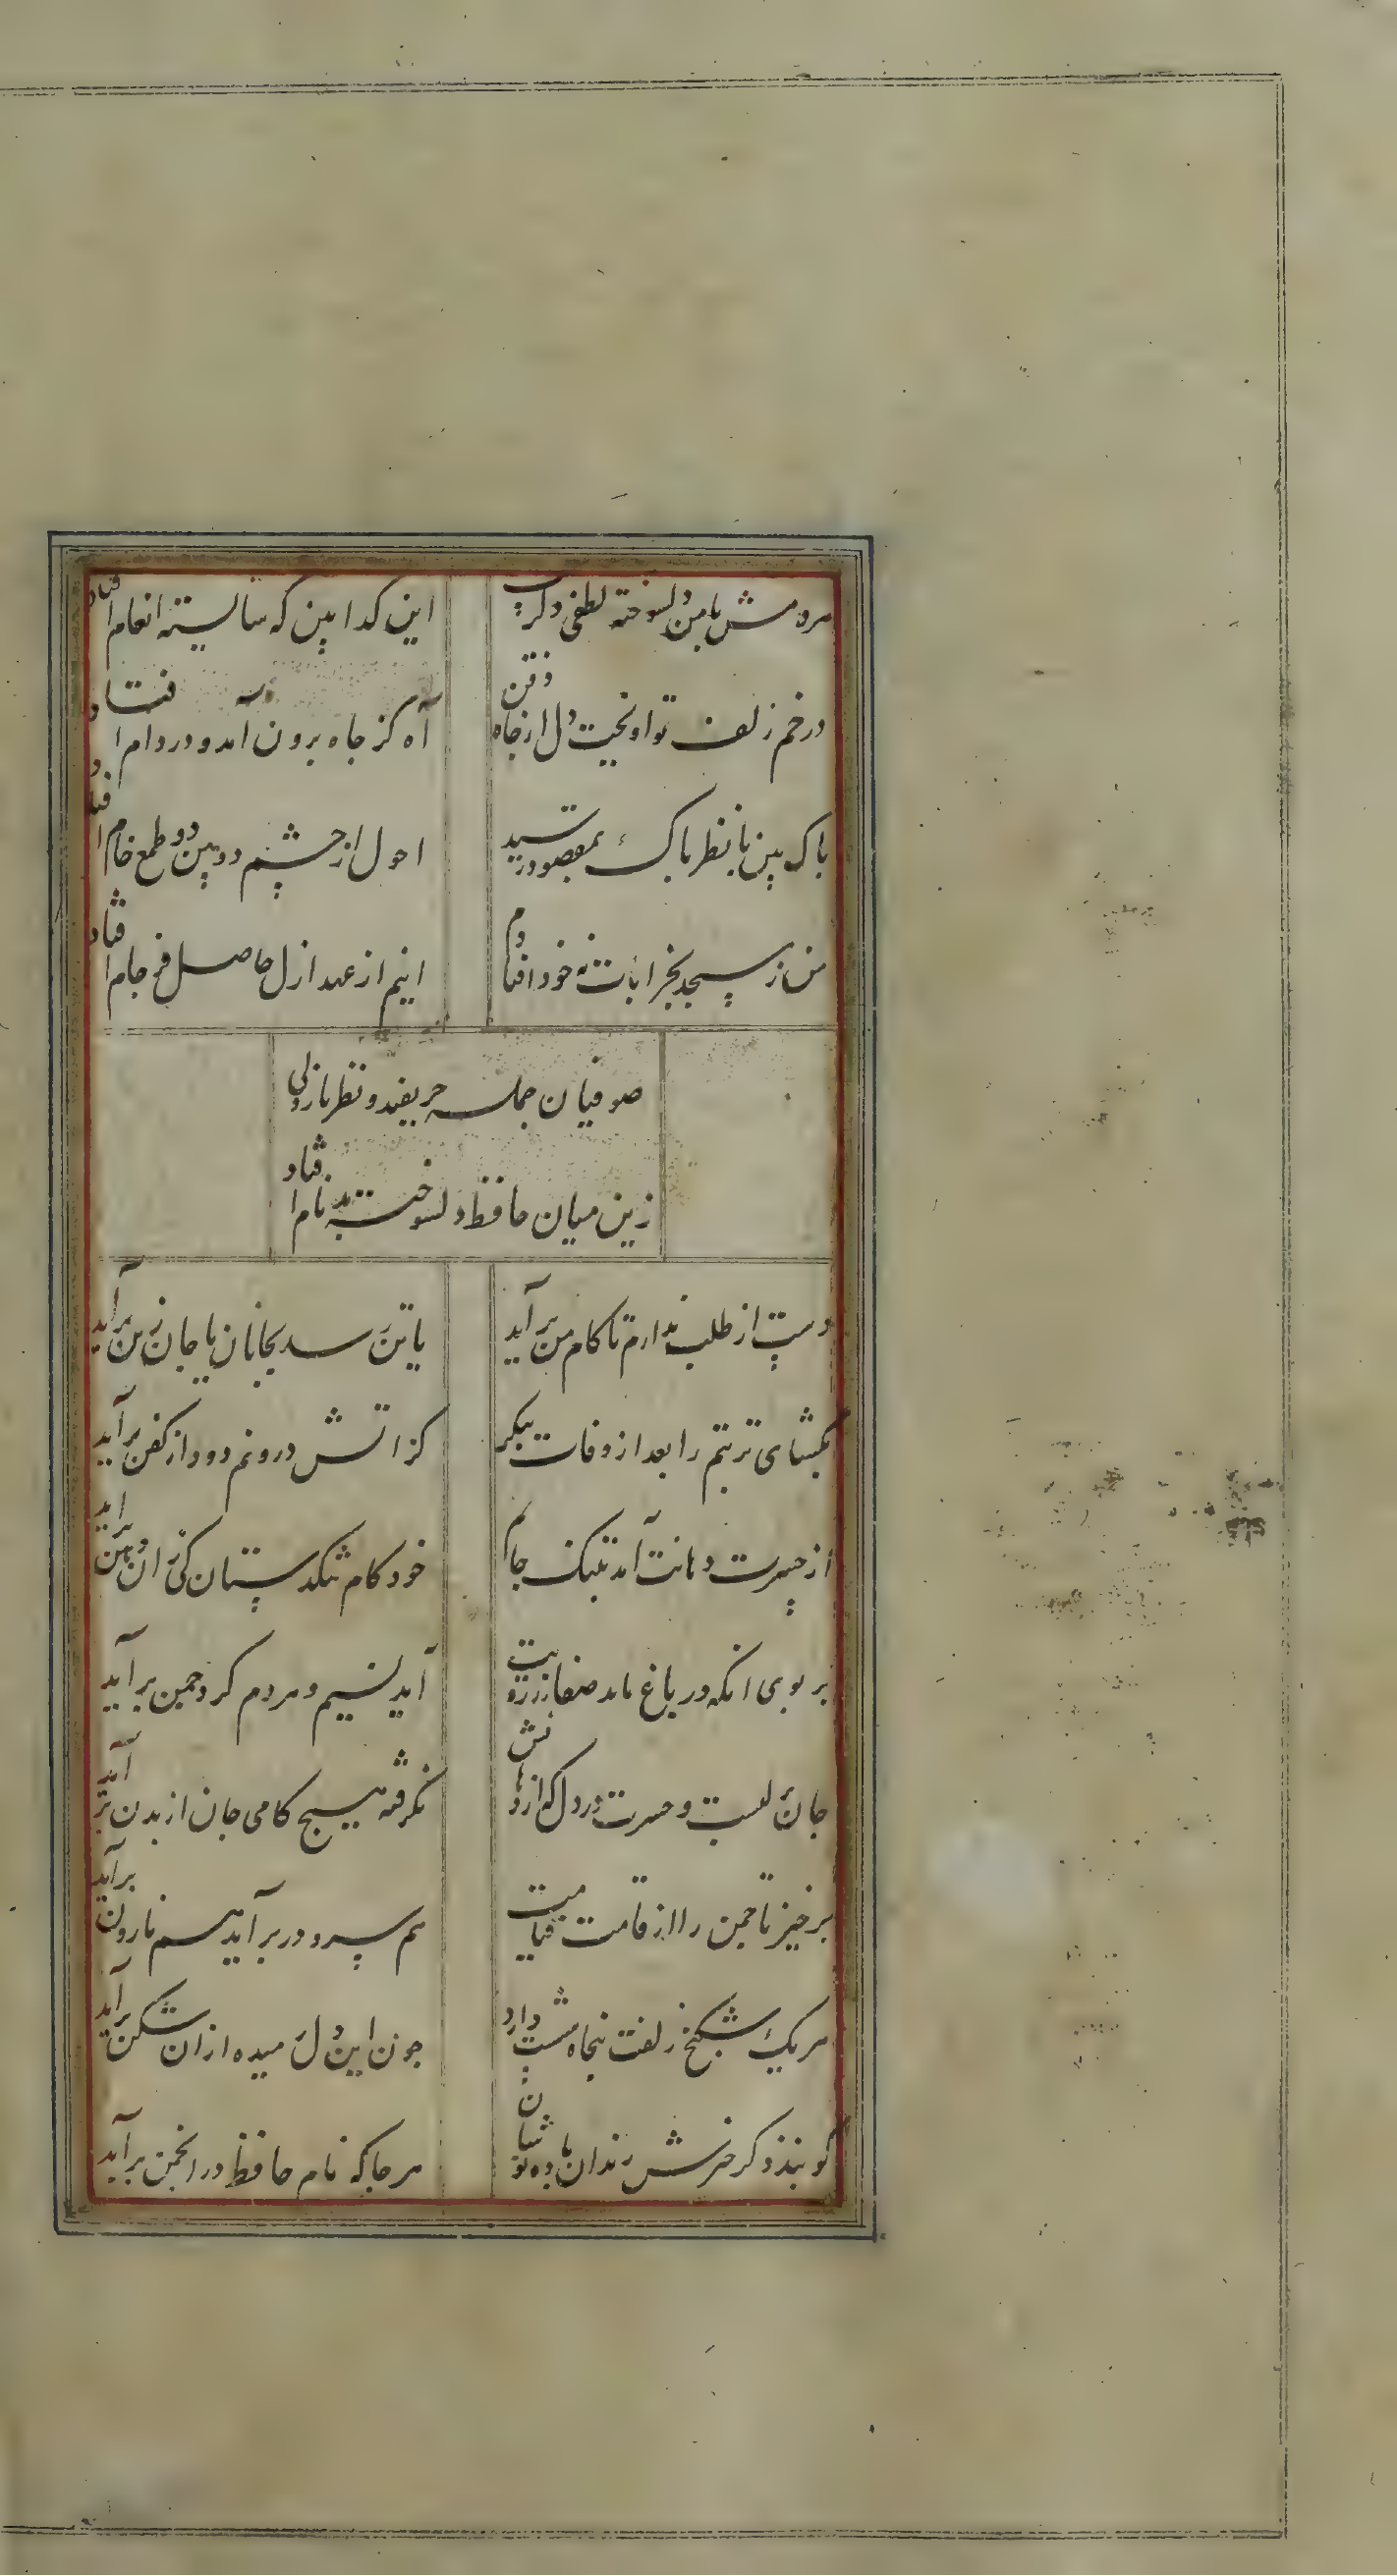 هر دمش با من دلسوخته لطفی دگرست
این کدا بین که شایسته انعام افتاد
در خم زلف تو اویخت دل از جاه ذقن
آه کز جاه برون آمد و در دام افتاد
باک بین با نظر باک بمقصود رسید
احول از چشم دو بین در طمع خام افتاد
من ز مسجد بخرابات نه خود افتادم
اینم از عهد ازل حاصل فرجام افتاد
صوفیان جمله حریفند و نظرباز ولی
زین میان حافظ دلسوخته بدنام افتاد
دست از طلب ندارم تا کام من برآید
یا تن رسد بجانان یا جان ز تن برآید
بکشای تربتم را بعد از وفات بنکر
کز اتش درونم دود از کفن برآید
از حسرت دهانت آمد بتنک جانم
خود کام تنکدستان کی زان دهن براید
بر بوی انکه در باغ یابد صفا ز رویت
آید نسیم و هر دم کرد جمن برآید
جان بر لبست و حسرت در دل که از لبانش
نکرفته هیچ کامی جان از بدن برآید
برخیز تا جمن را از قامت قیامت
هم سرو در بر آید هم نارون برآید
هر یک شکنج زلفت بنجاه شست دارد
جون این دل رمیده از ان شکن برآید
کویند ذکر خیرش رندان باده نوشان
هر جا که نام حافظ در انجمن برآید